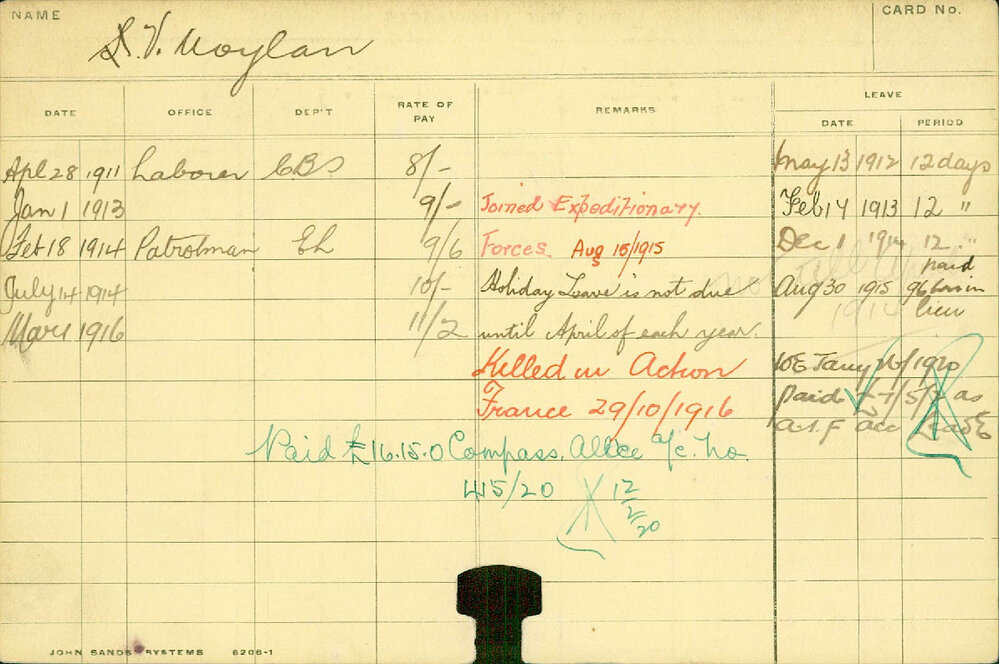 NAME
CARD No.
S. V. Moylan
DATE OFFICE DEP'T RATE OF PAY REMARKS LEAVE
DATE PERIOD
Apl 28 1911 Laborer CBS 8/- May 13 1912 12 days
Jan 1 1913 9/- Joined Expeditionary Feb 17 1913 12 "
Feb 18 1914 Patrolman EL 9/6 Forces Aug 15/1915 Dec 1 1914 12 "
July 14 1914 10/- Holiday Leave is not due Aug 30 1915 96 hrs in
paid
lieu
Mar 1 1916 11/2 until April of each year.
Killed in Action
France 29/10/1916
WE Jany 1920
Paid £7/5/7 as
A.I.F acc Leave
Paid £16.15.0 Compass. Allce a/c. No.
415/20 12/2/20
JOHN SANDS SYSTEMS 6206-1